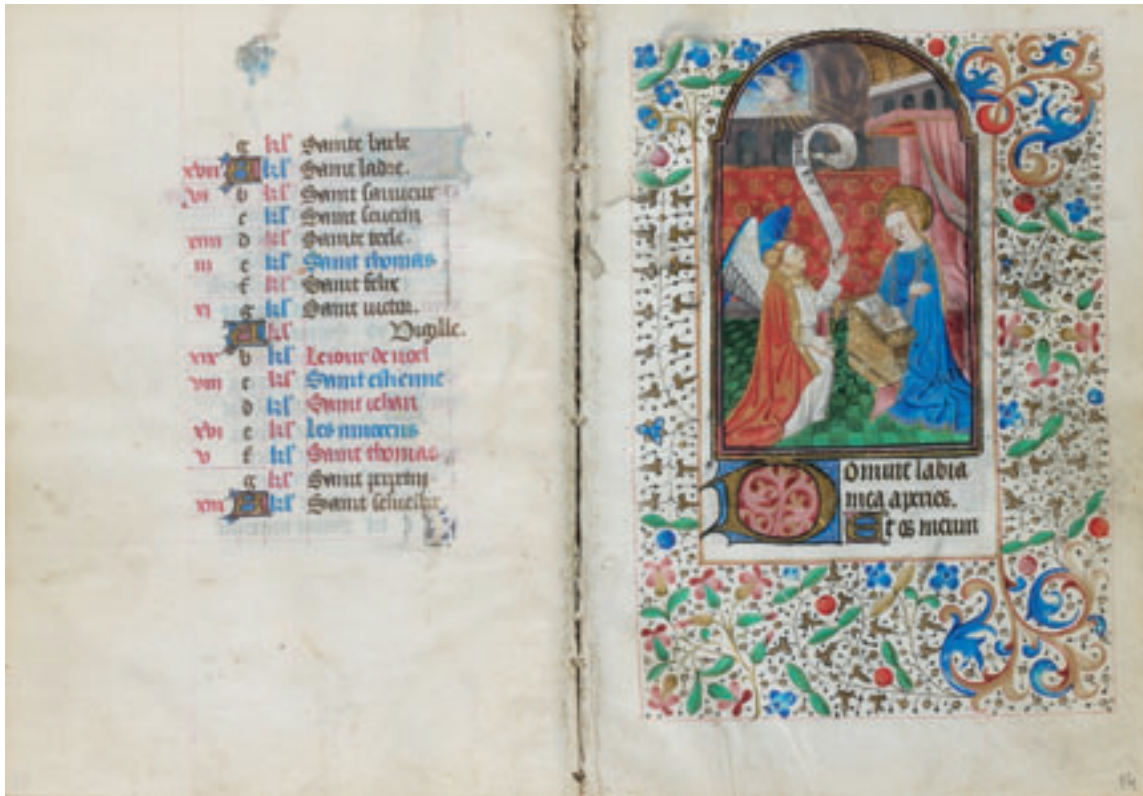 g kl' Sainte
xviii A kl' Saint ladre.
vi b kl' Saint sauveur
c kl' Saint seuerin
xiiii d kl' Sainte tecle.
iii e kl' Saint thomas
f kl' Saint felix
xi g kl' Saint uictor.
A kl' Vigille.
xix b kl' Le iour de noel
viii c kl' Saint estienne
d kl' Saint iehan
xvi e kl' Les innocens
v f kl' Saint thomas
g kl' Saint
xiii A kl' Saint seluestre
Domine labia
mea aperies.
Et os meum
14